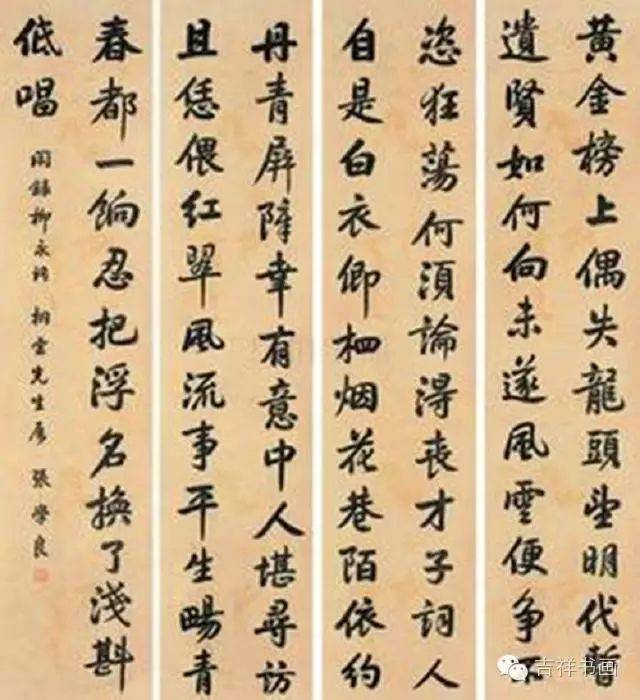 黄金榜上偶失龍頭望明代暫
遺賢如何向未遂風雲便争不
恣狂蕩何須論得喪才子詞人
自是白衣卿相烟花巷陌依約
丹青屏障幸有意中人堪尋訪
且恁偎紅翠風流事平生暢青
春都一餉忍把浮名換了淺斟
低唱
録柳永詞 先生屬 張學良
吉祥书画